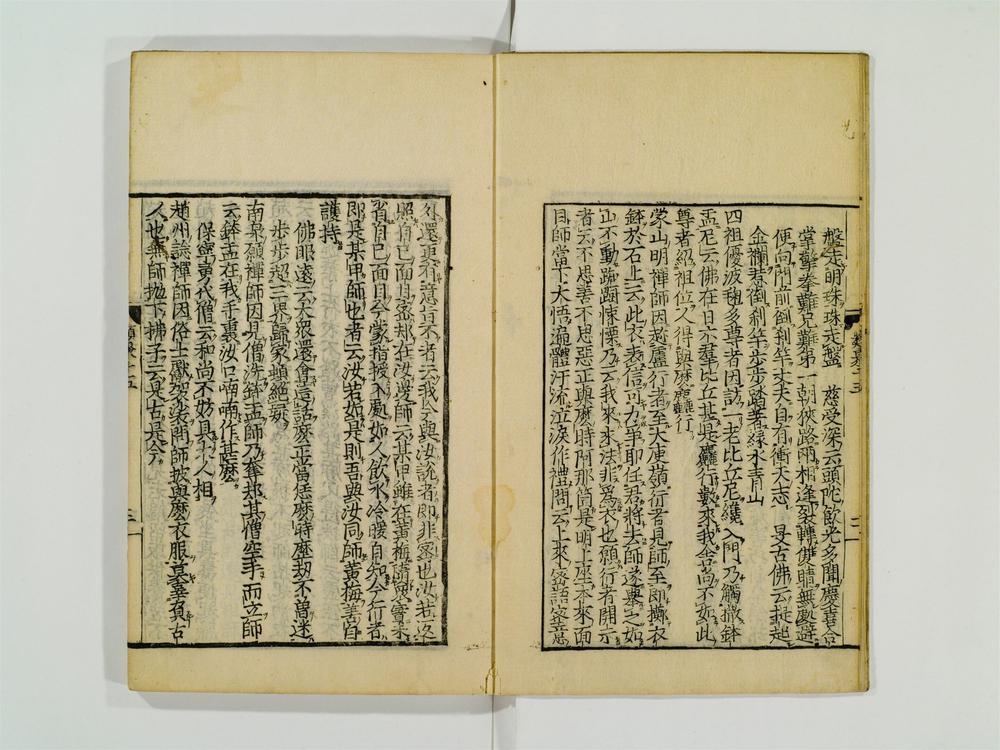 盤走明珠珠走盤　慈受深云頭陀飲光多聞慶喜合
掌擎拳難兄難弟一朝俠路兩相逢裂轉雙睛無廻避
便向門前倒刹竿丈夫自有衝天志　旻古佛云提起
金襴慈倒刹竿步步踏著綠水青山
四祖優波毱多尊者因訪一老比丘尼纔入門乃觸撒鉢
盂尼云佛在日六羣比丘甚是麤行數來我舍尚不如此
尊者紹祖位人得與麽麤行
蒙山明禪師因趂盧行者至大庾嶺行者見師至即擲衣
鉢於石上云此衣表信可力爭耶任君將去師遂擧之如
山不動踟躕悚慄乃云我來求法非爲衣也願行者開示
者云不思善不思惡正與麽時阿那箇是明上座本來面
目師當下大悟遍體汗流泣淚作禮問云上來密語密意
外還更有意旨不者云我今與汝說者即非密也汝若返
照自己面目密却在汝邊師云某甲雖在黃梅隨衆實未
省自己面目今蒙指授入處如人飲水冷暖自知今行者
即是某甲師也者云汝若如是則吾與汝同師黃梅善自
護持
佛眼遠云大衆還會這話麽正當恁麽時歷劫不曾迷
步步超三界歸家頓絕疑
南泉願禪師因見僧洗鉢盂師乃奪却其僧空手而立師
云鉢盂在我手裏汝口喃喃作甚麽
保寧勇代僧云和尚不妨具大人相
趙州諗禪師因俗士獻袈裟問師披與麽衣服莫辜負古
人也無師抛下拂子云是古是今